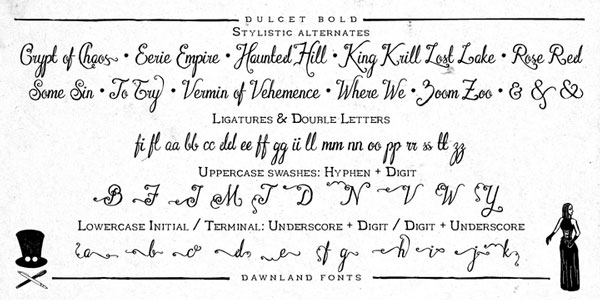 DULCET BOLD
STYLISTIC ALTERNATES
Crypt of Chaos • Eerie Empire • Haunted Hill • King Krill Lost Lake • Rose Red
Some Sin • To Try • Vermin of Vehemence • Where We • Zoom Zoo • & & &
LIGATURES & DOUBLE LETTERS
fi fl aa bb cc dd ee ff gg ii ll mm nn oo pp rr ss tt zz
UPPERCASE SWASHES: HYPHEN + DIGIT
B F I M T D N V W Y
LOWERCASE INITIAL / TERMINAL: UNDERSCORE + DIGIT / DIGIT + UNDERSCORE
a b c d e f g h i j k
DAWNLAND FONTS